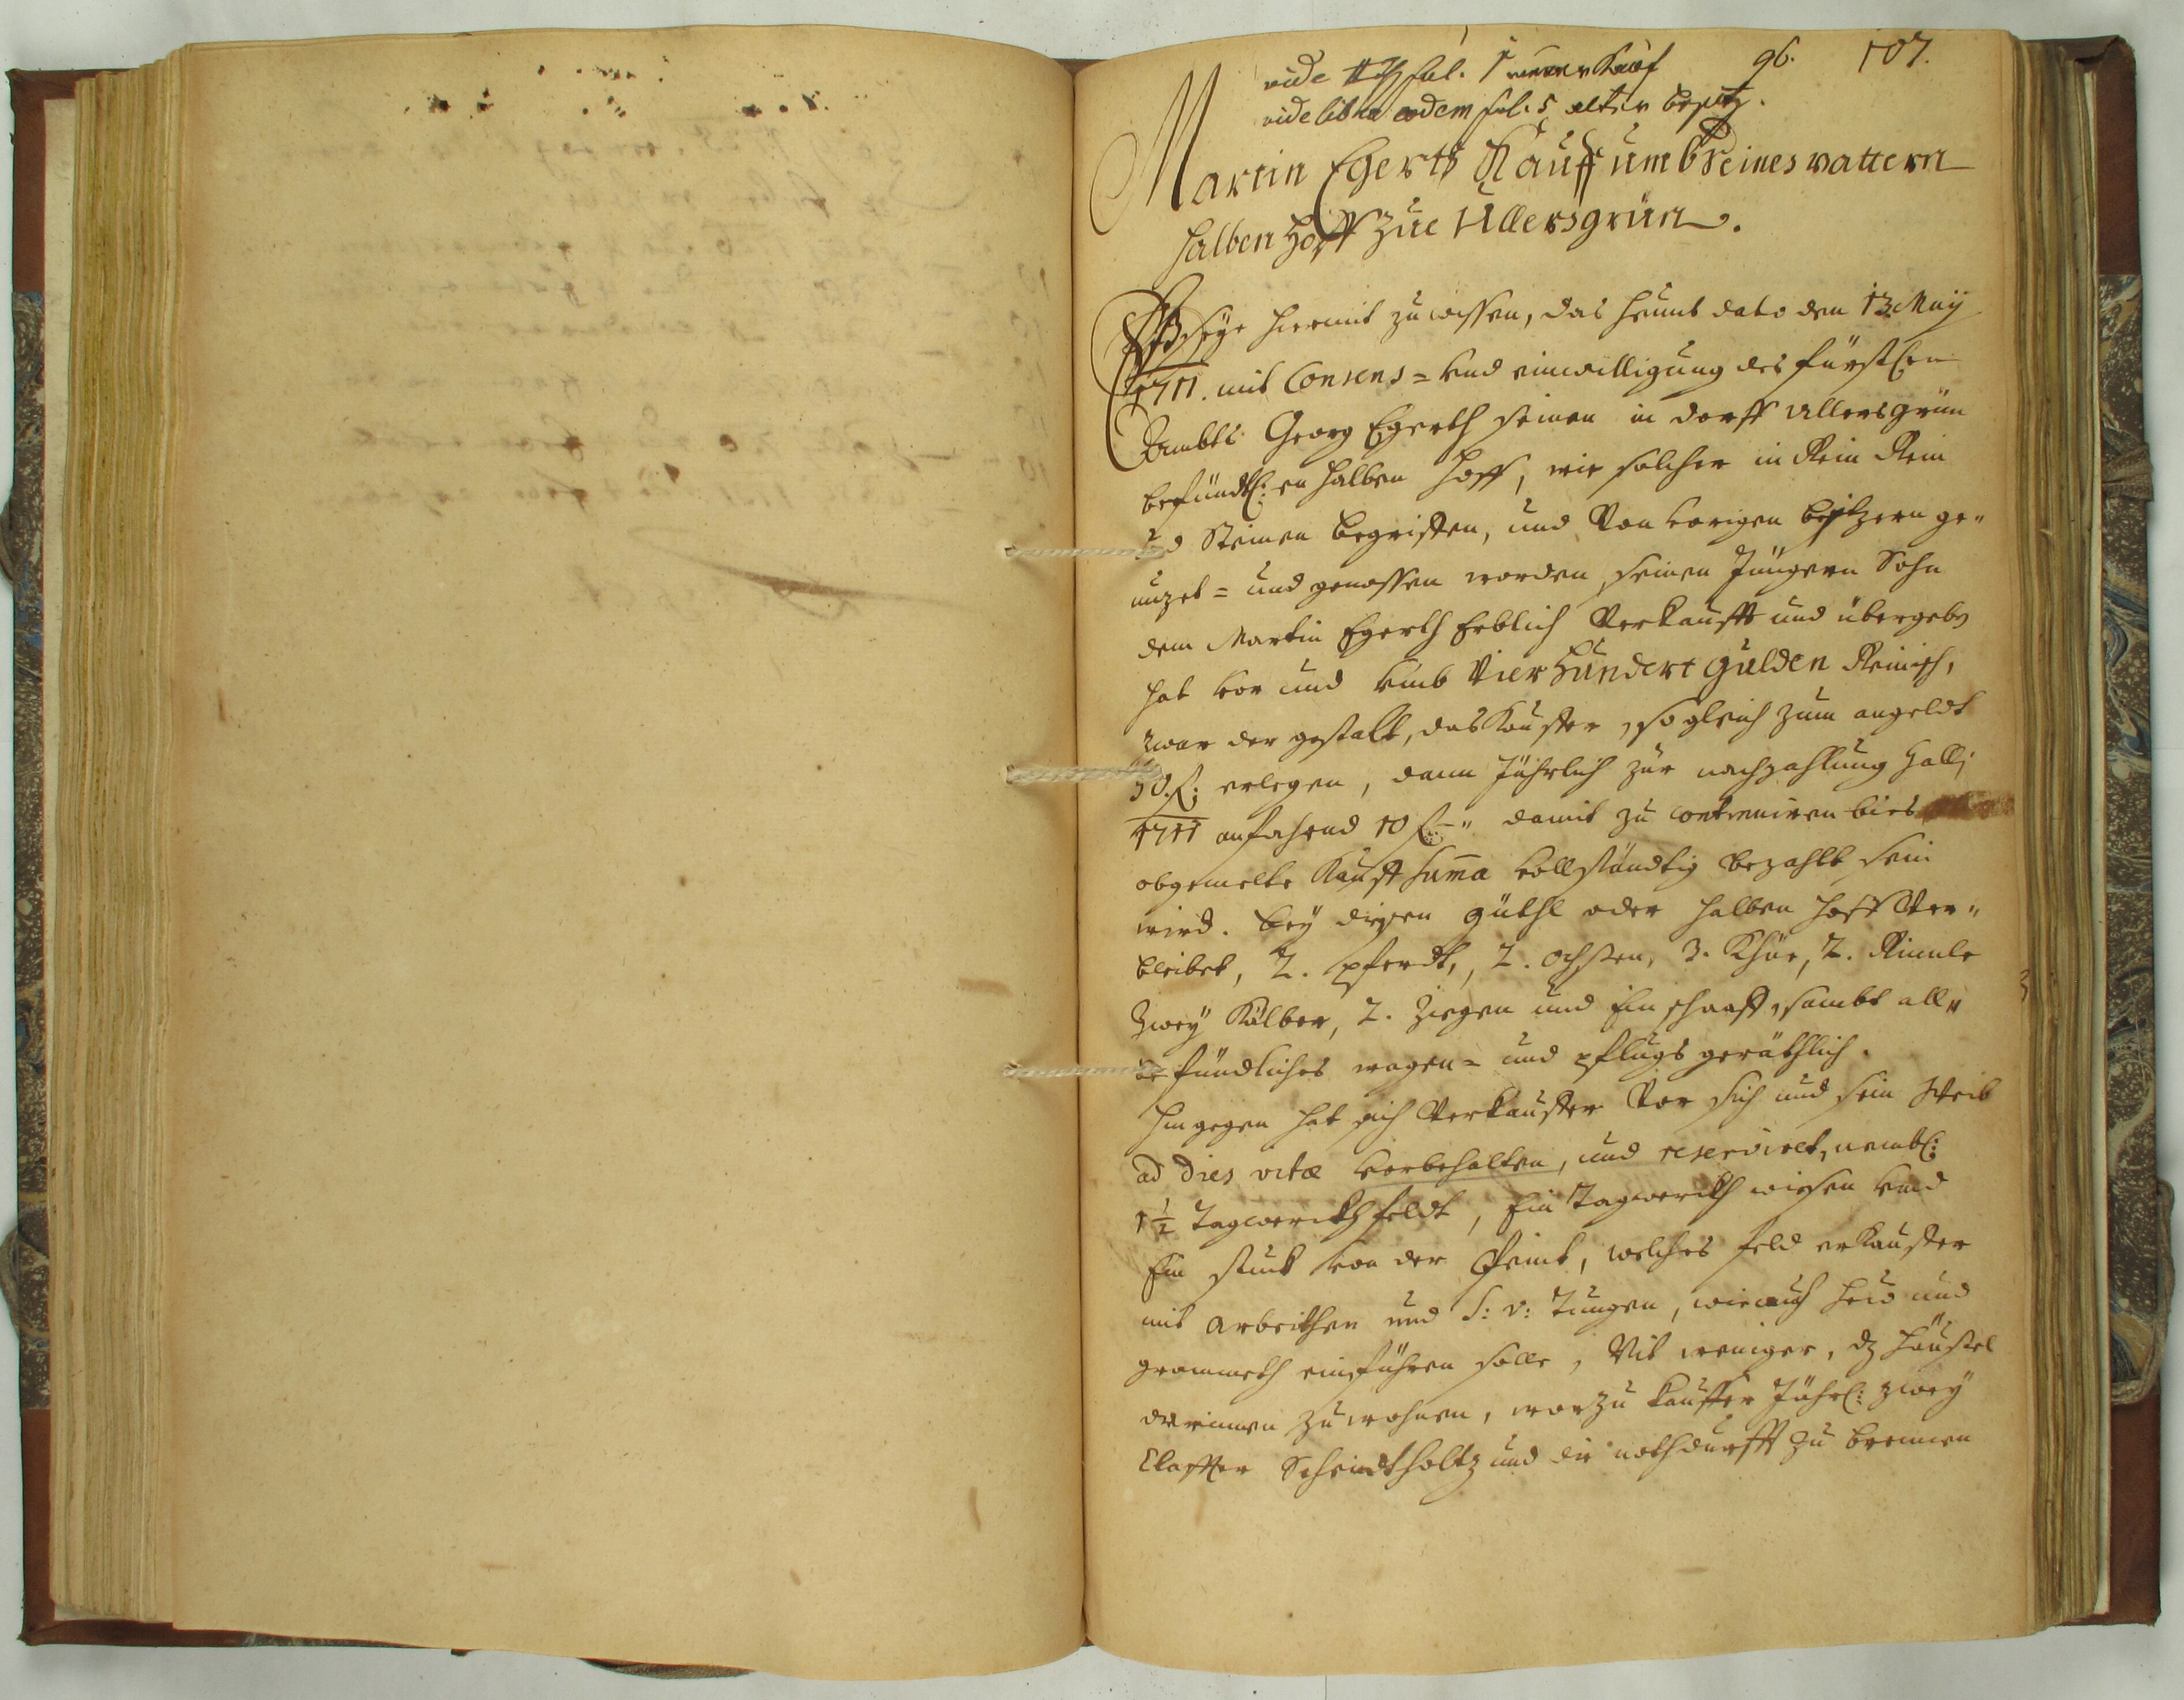 96. 107.
vide fol. 1 neuer Kauf
vide libro eodem fol. 5 alter besitz.
Martin Egerts Kauff umb seines vattern
halben Hoff zue Ullersgrün.
Eß seye hiermit zu wissen, das heunt dato den 13 Maij
1711. mit Consens = und einwilligung des fürstlen
Ambts Georg Egerth seinen in dorff Ullersgrün
befündtl: en halben Hoff, wie solcher in Rein Rein
und Steinen begriffen, und von vorigen besitzern ge„
nuzet = und genossen worden, seinen Jüngern Sohn
dem Martin Egerth Erblich verkaufft und übergeben
hat vor und umb Vier Hundert gulden Reinisch,
zwar der gestalt, das Kauffer, sogleich zum angeldt
50. f: erlegen, dann Jährlich zur nachzahlung Galli
1711 anfahend 10 f „ damit zu continuiren bies
obgemelte Kauff suma vollständtig bezahlt sein
wird. bey diesen güthl oder halben hoff ver„
bleibet, 2. pferdt, 2. ochsen, 3. Khüe, 2. Rindle
Zwey Kälber, 2. Ziegen und Ein schaaff, sambt all„
befündliches wagen = und pflugs geräthlich.
Hingegen hat sich verkauffer vor sich und sein Weib
ad dies vitæ vorbehalten, und reserviret, nembl:
1½ Tagwerckh feldt, Ein Tagwerckh wiesen und
Ein stuck von der Peint, welches feld erkauffer
mit arbeithen und S: v: Tungen, wie auch heu und
grammeth einführen solle, Nit weniger, dz häussel
darinnen zu wohnen, warzu kauffer Jährl: zwey
Claffter Scheidtholtz und die nothdurfft zu brennen